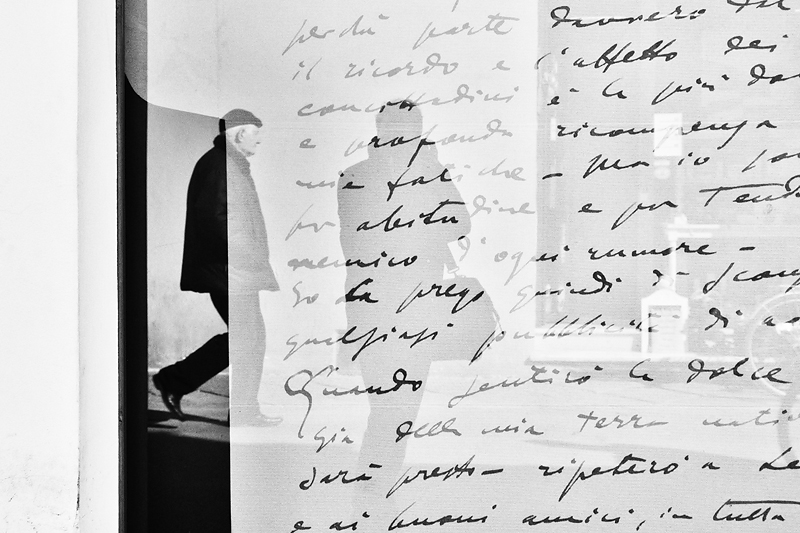 perchè parte davvero dal
il ricordo e l'affetto dei
concittadini è la più
e profonda ricompensa
mie fatiche – ma io
per abitudine e per
nemico d'ogni rumore –
So La prego quindi di
qualsiasi pubblicità di
Quando sentirò la dolce
già della mia terra
sarà presto – ripeterò a Le
e ai buoni amici, in tutta